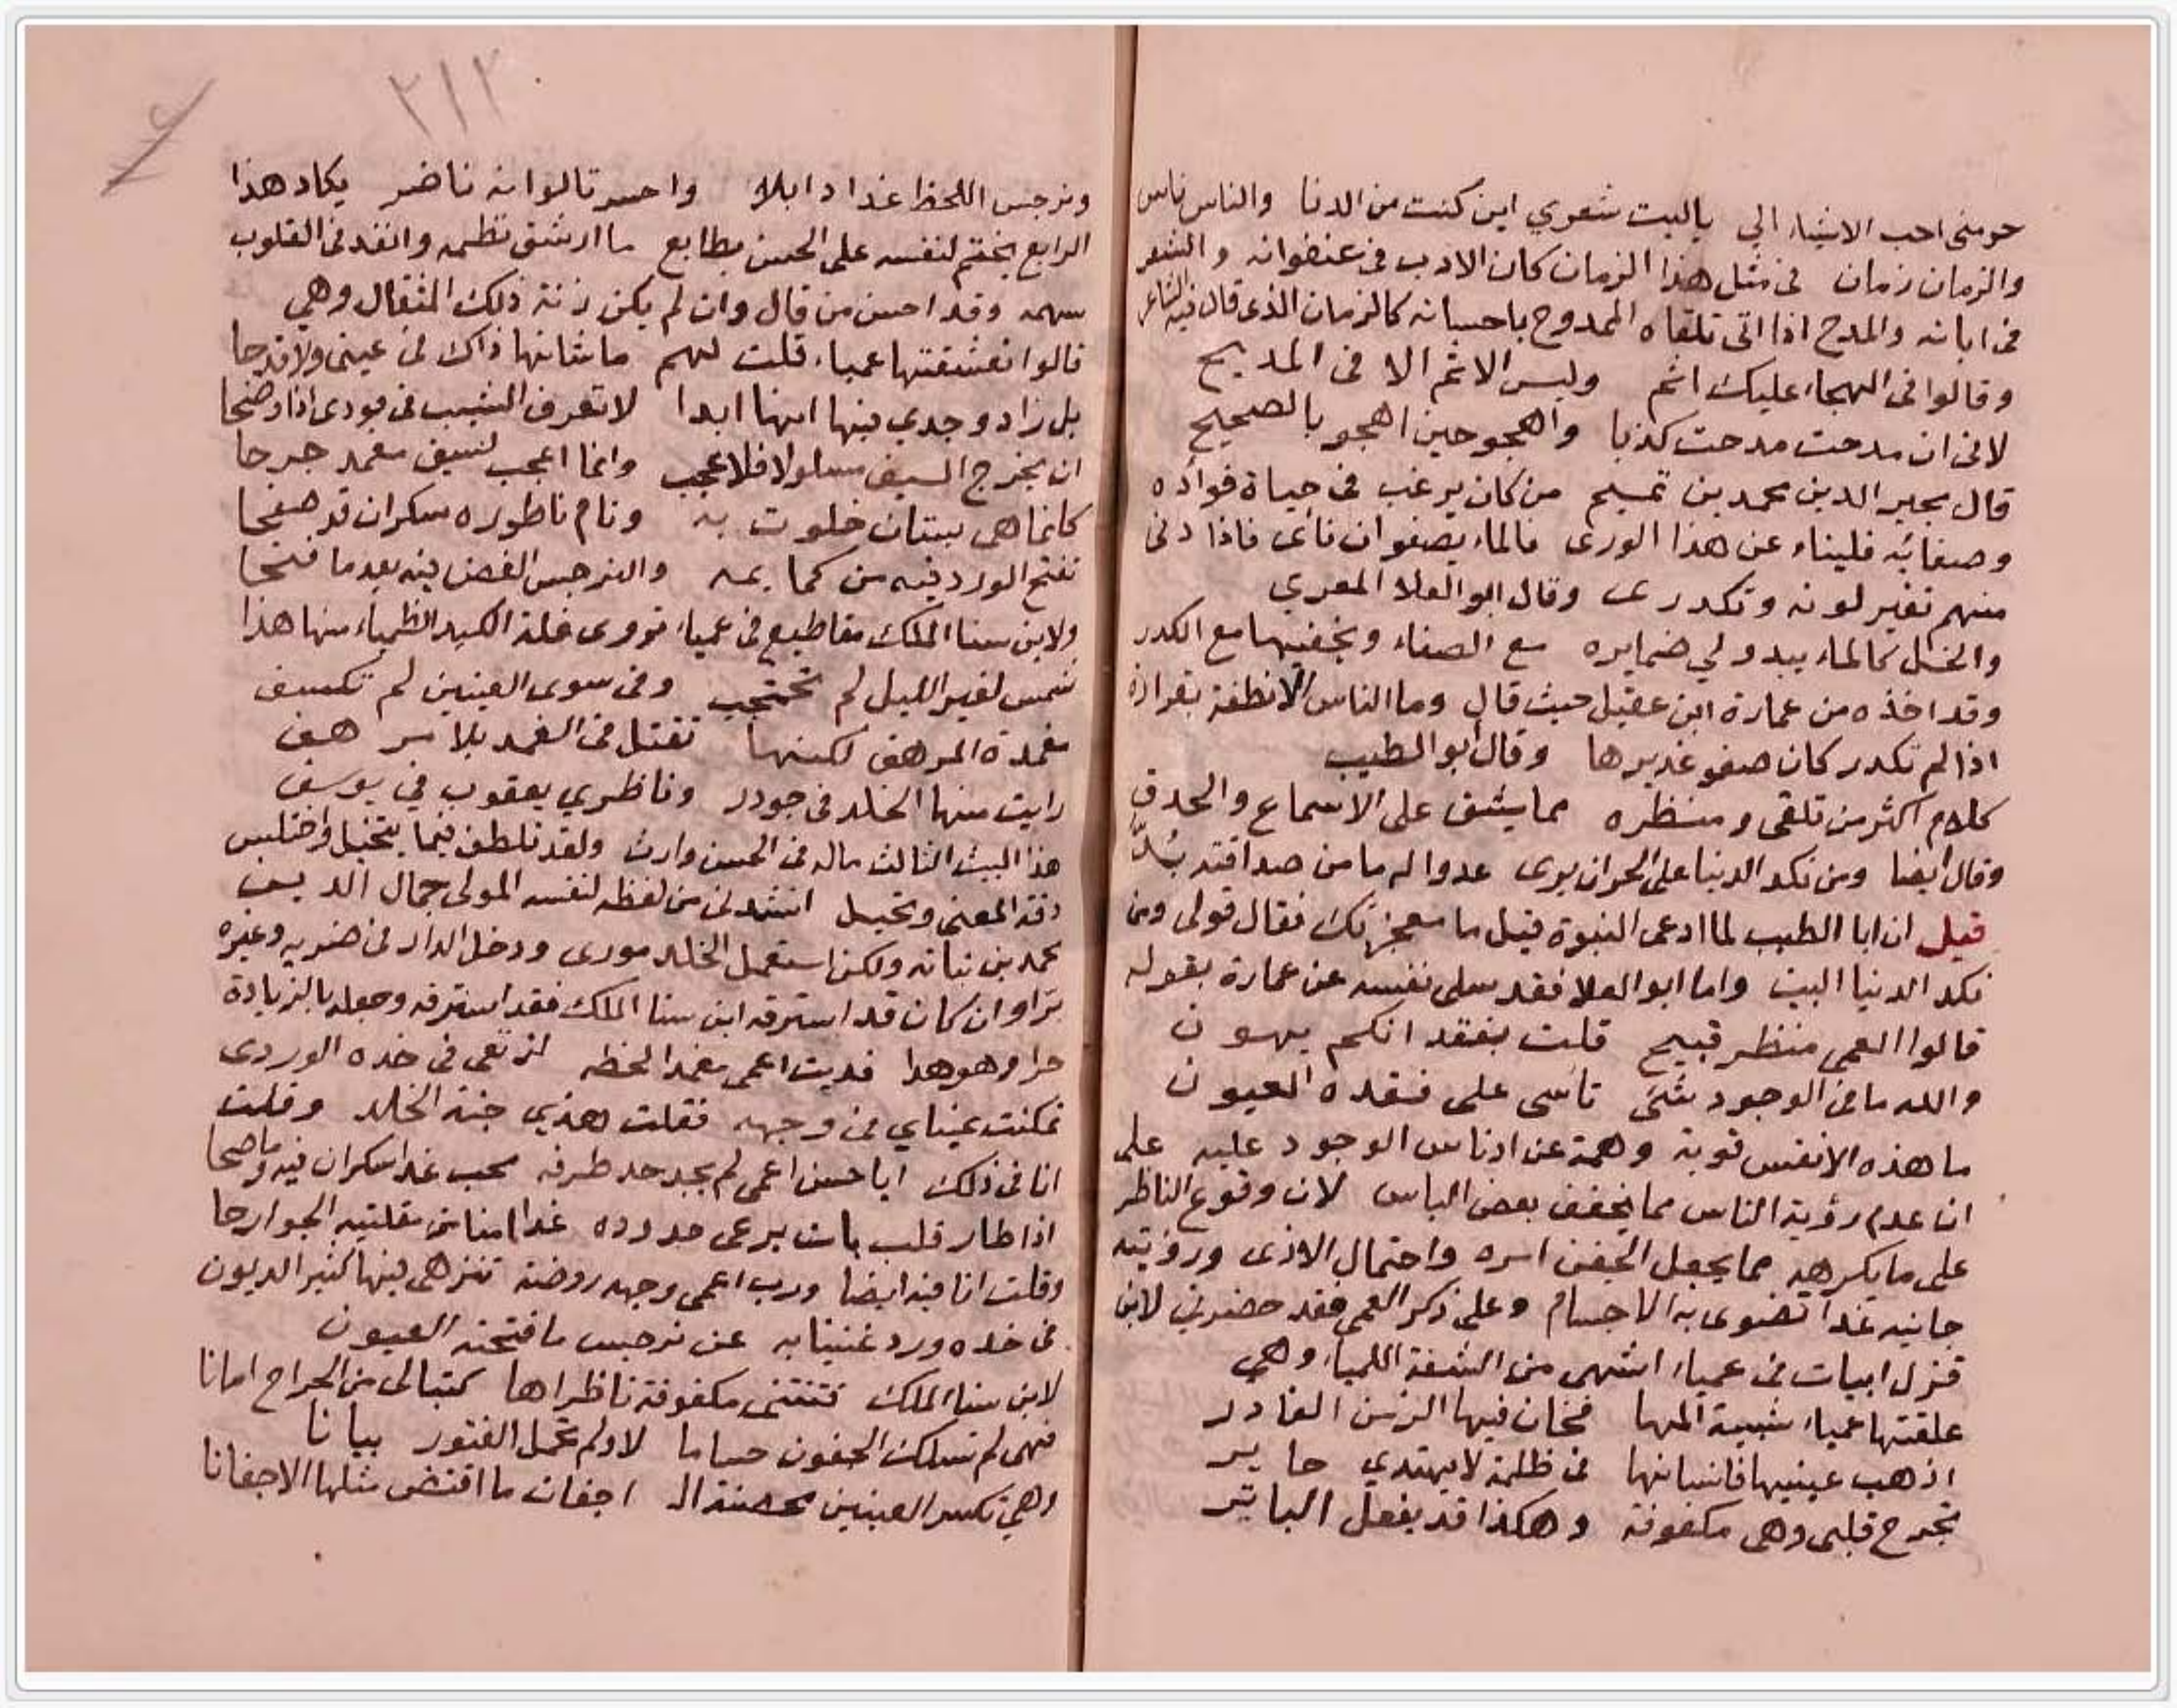 حومنى احب الاشياء الي ياليت شعري اين كنت من الدنا والناس ناس
والزمان زمان فى مثل هذا الزمان كان الادب فى عنفوانه والشعر
فى ابانه والمدح اذا اتى تلقاه الممدوح باحسانه كالزمان الذى قال فيه الشاعر
وقالوا فى الهجاء عليك اثم وليس الاثم الا فى المديح
لانى ان مدحت مدحت كذبا واهجو حين اهجو بالصحيح
قال مجير الدين محمد بن تميم من كان يرغب فى حياة فواده
وصفائه فليناء عن هذا الورى فالماء يصفو ان نأى فاذا دنى
منهم تغير لونه وتكدرى وقال ابو العلا المعري
والخل كالماء يبدو لي ضمايره مع الصفاء ويخفيها مع الكدر
وقد اخذه من عمارة ابن عقيل حيث قال وما الناس الا نطفة بقرارة
اذا لم تكدر كان صفو غديرها وقال ابو الطيب
كلام اكثر من تلقى ومنظره مما يشق على الاسماع والحدق
وقال ايضا ومن نكد الدنيا على الحر ان يرى عدوا له ما من صداقته بُدّ
قيل ان ابا الطيب لما ادعى النبوة قيل ما معجزتك فقال قولى ومن
نكد الدنيا البيت واما ابو العلا فقد سلى نفسه عن عمارة بقوله
قالوا العمى منظر قبيح قلت بفقدانكم يهون
والله ما فى الوجود شئ تاسى على فقده العيون
ما هذه الا نفس قوية وهمة عن ادناس الوجود عليه على
ان عدم رؤية الناس مما يخفف بعض الباس لان وقوع الناظر
على ما يكرهه مما يجعل الجفن اسره واحتمال الاذى ورؤيته
جانيه غدا تضوى به الاجسام وعلى ذكر العمى فقد حضرني لابن
قزل ابيات فى عمياء اشهى من الشفة اللمياء وهي
علقتها عمياء شبيهة المها فخان فيها الزمن الغادر
اذهب عينيها فانسانها فى ظلمة لا يهتدي حاير
تجرح قلبى وهى مكفوفة وهكذا قد يفعل الباتر
٢١٢
ونرجس اللحظ غدا ذابلا واحسرتا لو انه ناضر يكاد هذا
الرابع يختم لنفسه على الحسن بطابع ما ارشق نظمه وانفذ فى القلوب
سهمه وقد احسن من قال وان لم يكن زنة ذلك المثقال وهي
قالوا تعشقتها عمياء قلت لهم ما شانها ذاك فى عينى ولا قدحا
بل زاد وجدي فيها انها ابدا لا تعرف الشيب فى فودى اذا وضحا
ان يجرح السيف مسلولا فلا عجب وانما اعجب لسيف مغمد جرحا
كانما هى بستان خلوت به ونام ناطوره سكران قد صفحا
تفتح الورد فيه من كمايمه والنرجس الغض فيه بعد ما فتحا
ولابن سنا الملك مقاطيع فى عمياء تروى غلة الكبد الظمياء منها هذا
شمس لغير الليل لم تحتجب وفى سوى العينين لم تكسف
مغمدة المرهف لكنها تقتل فى الغمد بلا مرهف
رايت منها الخلد فى جودر وناظري يعقوب في يوسف
هذا البيت الثالث ماله فى الحسن وارث ولقد تلطف فيما يتخيل واختلس
دقة المعنى وتخيل انشدنى من لفظه لنفسه المولى جمال الدين
محمد بن نباته ولكن استعمل الخلد مورى ودخل الدار فى ضربه وغيره
براو ان كان قد استرقه ابن سنا الملك فقد استرقه وجعله بالزيادة
حرا وهو هدا فديت اعمى مغمد الحظه ارتقى فى خده الوردى
تمكنت عيناي فى وجهه فقلت هذي جنة الخلد وقلت
انا فى ذلك ايا حسن اعمى لم يجد حد طرفه محب غدا سكران فيه وما صحا
اذا طار قلب بات يرعى خدوده غدا امنا من مقلتيه الجوارحا
وقلت انا فيه ايضا ورب اعمى وجهه روضة تنزهى فيها كثير الديون
فى خده ورد غنينا به عن نرجس ما فتحته العيون
لابن سنا الملك فتنتنى مكفوفة ناظراها كتبا لى من الجراح امانا
فهى لم تسلك الجفون حساما لا ولم تحمل الفتور بيانا
وهي تكسر العينين محصنة الـ اجفان ما اقتض مثلها الاجفانا